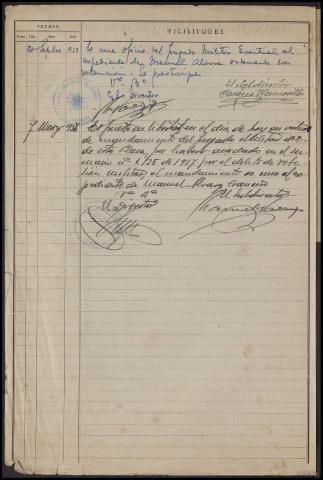 FECHAS
VICISITUDES
Día Mes Año
20 Septbre 1937 Se une oficio del Juzgado Militar Eventual, al
expediente de Manuel Alvarez ordenando su
retención
Vº Bº
El Director
El Subdirector
7 Marzo 1938 Es puesto en libertad en el día de hoy en virtud
de mandamiento del Juzgado Militar nº 2
de esta Plaza por haberlo acordado en el su-
mario nº 1.125 de 1937 por el delito de rebe-
lión militar, el mandamiento se une al ex-
pediente de Manuel Alvarez
Vº Bº
El Director
El Subdirector